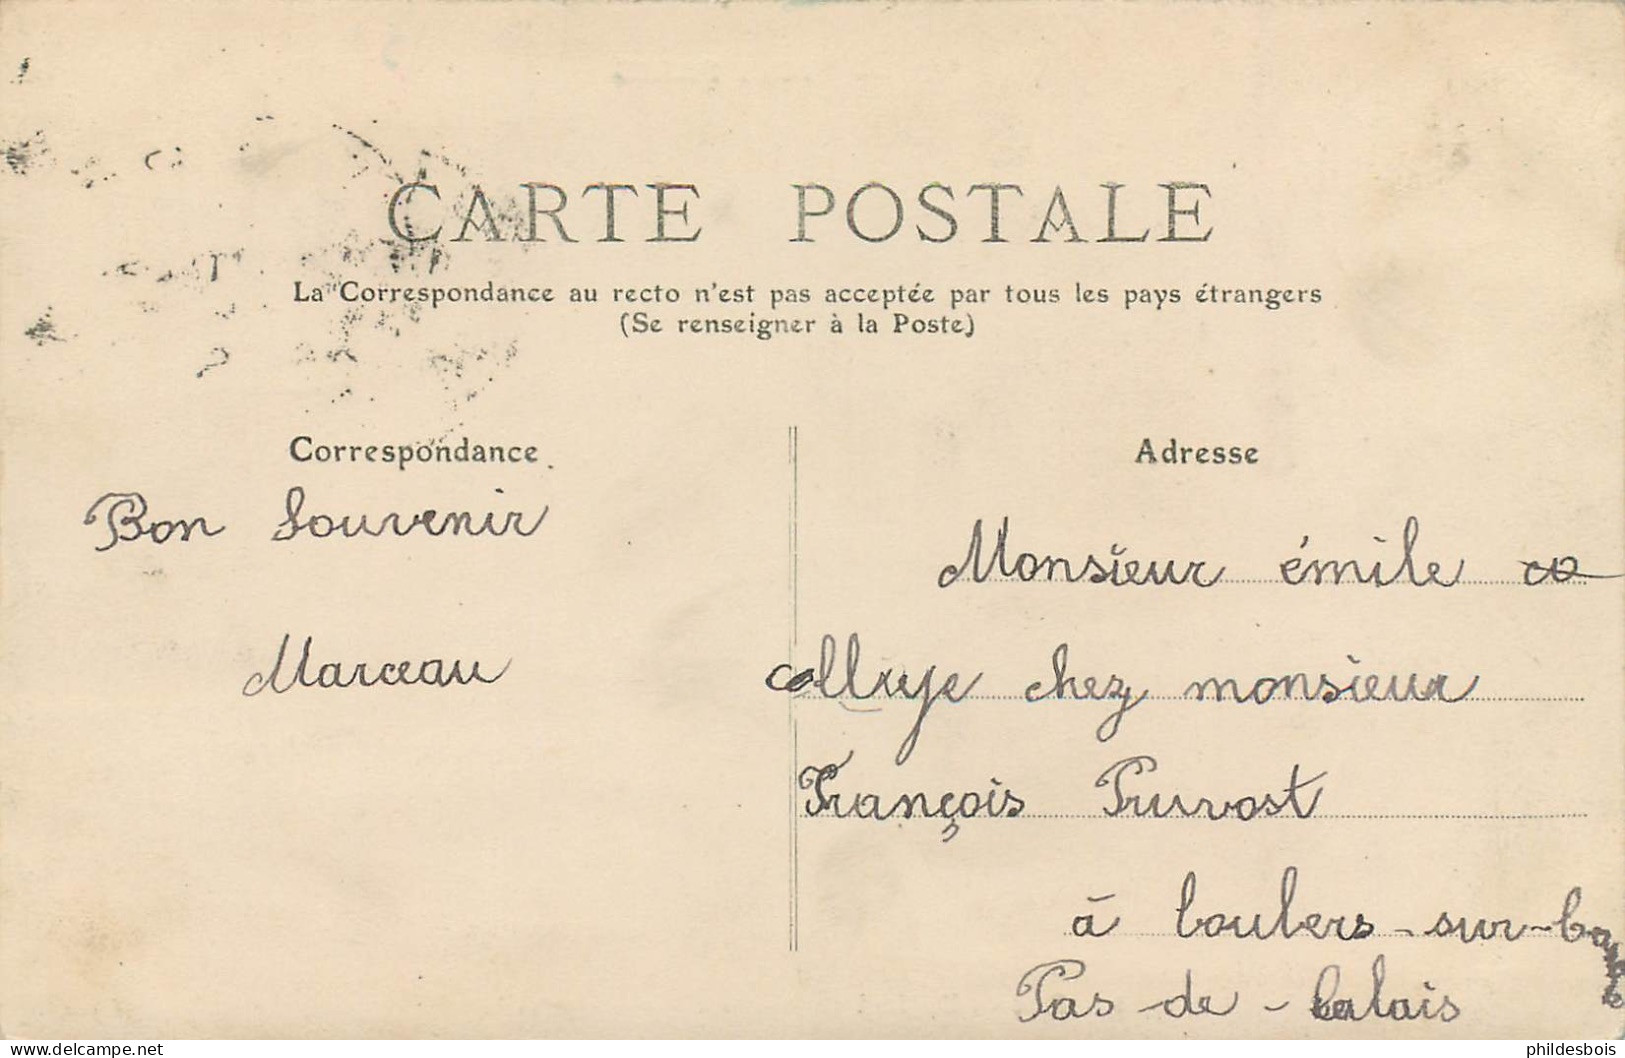 CARTE POSTALE
La Correspondance au recto n'est pas acceptée par tous les pays étrangers
(Se renseigner à la Poste)
Correspondance
Bon Souvenir
Marceau
Adresse
Monsieur émile co
colluje chez monsieur
François Pruvost
à boubers-sur-canche
Pas-de-Calais
phildesbois